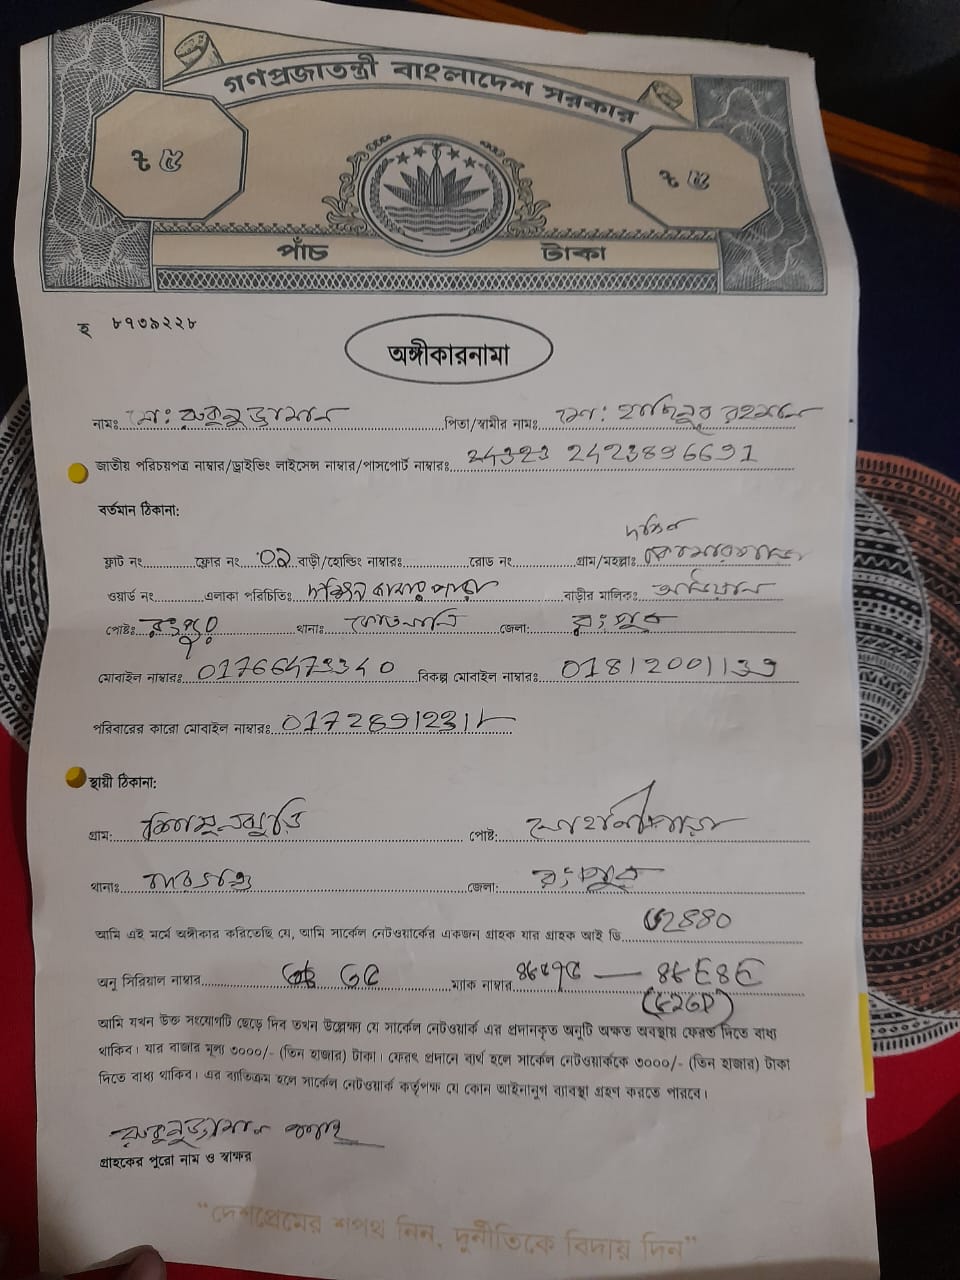 গণপ্রজাতন্ত্রী বাংলাদেশ সরকার
৳ ৫ ৳ ৫
পাঁচ টাকা
হ ৮৭৩৯২২৮
অঙ্গীকারনামা
নামঃ মোঃ রুকুনুজ্জামান পিতা/স্বামীর নামঃ মোঃ রহমান
জাতীয় পরিচয়পত্র নাম্বার/ড্রাইভিং লাইসেন্স নাম্বার/পাসপোর্ট নাম্বারঃ
বর্তমান ঠিকানা:
ফ্লাট নং ফ্লোর নং ০২ বাড়ী/হোল্ডিং নাম্বারঃ রোড নং গ্রাম/মহল্লাঃ দক্ষিন
ওয়ার্ড নং এলাকা পরিচিতিঃ দক্ষিন কামার পাড়া বাড়ীর মালিকঃ
পোষ্টঃ রংপুর থানাঃ কোতয়ালি জেলা: রংপুর
মোবাইল নাম্বারঃ 01766473340 বিকল্প মোবাইল নাম্বারঃ 01812001139
পরিবারের কারো মোবাইল নাম্বারঃ
স্থায়ী ঠিকানা:
গ্রাম: পোষ্ট:
থানাঃ জেলা: রংপুর
আমি এই মর্মে অঙ্গীকার করিতেছি যে, আমি সার্কেল নেটওয়ার্কের একজন গ্রাহক যার গ্রাহক আই ডি 2880
অনু সিরিয়াল নাম্বার ম্যাক নাম্বার
আমি যখন উক্ত সংযোগটি ছেড়ে দিব তখন উল্লেক্ষ্য যে সার্কেল নেটওয়ার্ক এর প্রদানকৃত অনুটি অক্ষত অবস্থায় ফেরত দিতে বাধ্য
থাকিব। যার বাজার মূল্য ৩০০০/- (তিন হাজার) টাকা। ফেরৎ প্রদানে ব্যর্থ হলে সার্কেল নেটওয়ার্ককে ৩০০০/- (তিন হাজার) টাকা
দিতে বাধ্য থাকিব। এর ব্যতিক্রম হলে সার্কেল নেটওয়ার্ক কর্তৃপক্ষ যে কোন আইনানুগ ব্যাবস্থা গ্রহণ করতে পারবে।
রুকুনুজ্জামান
গ্রাহকের পুরো নাম ও স্বাক্ষর
"দেশপ্রেমের শপথ নিন, দুর্নীতিকে বিদায় দিন"